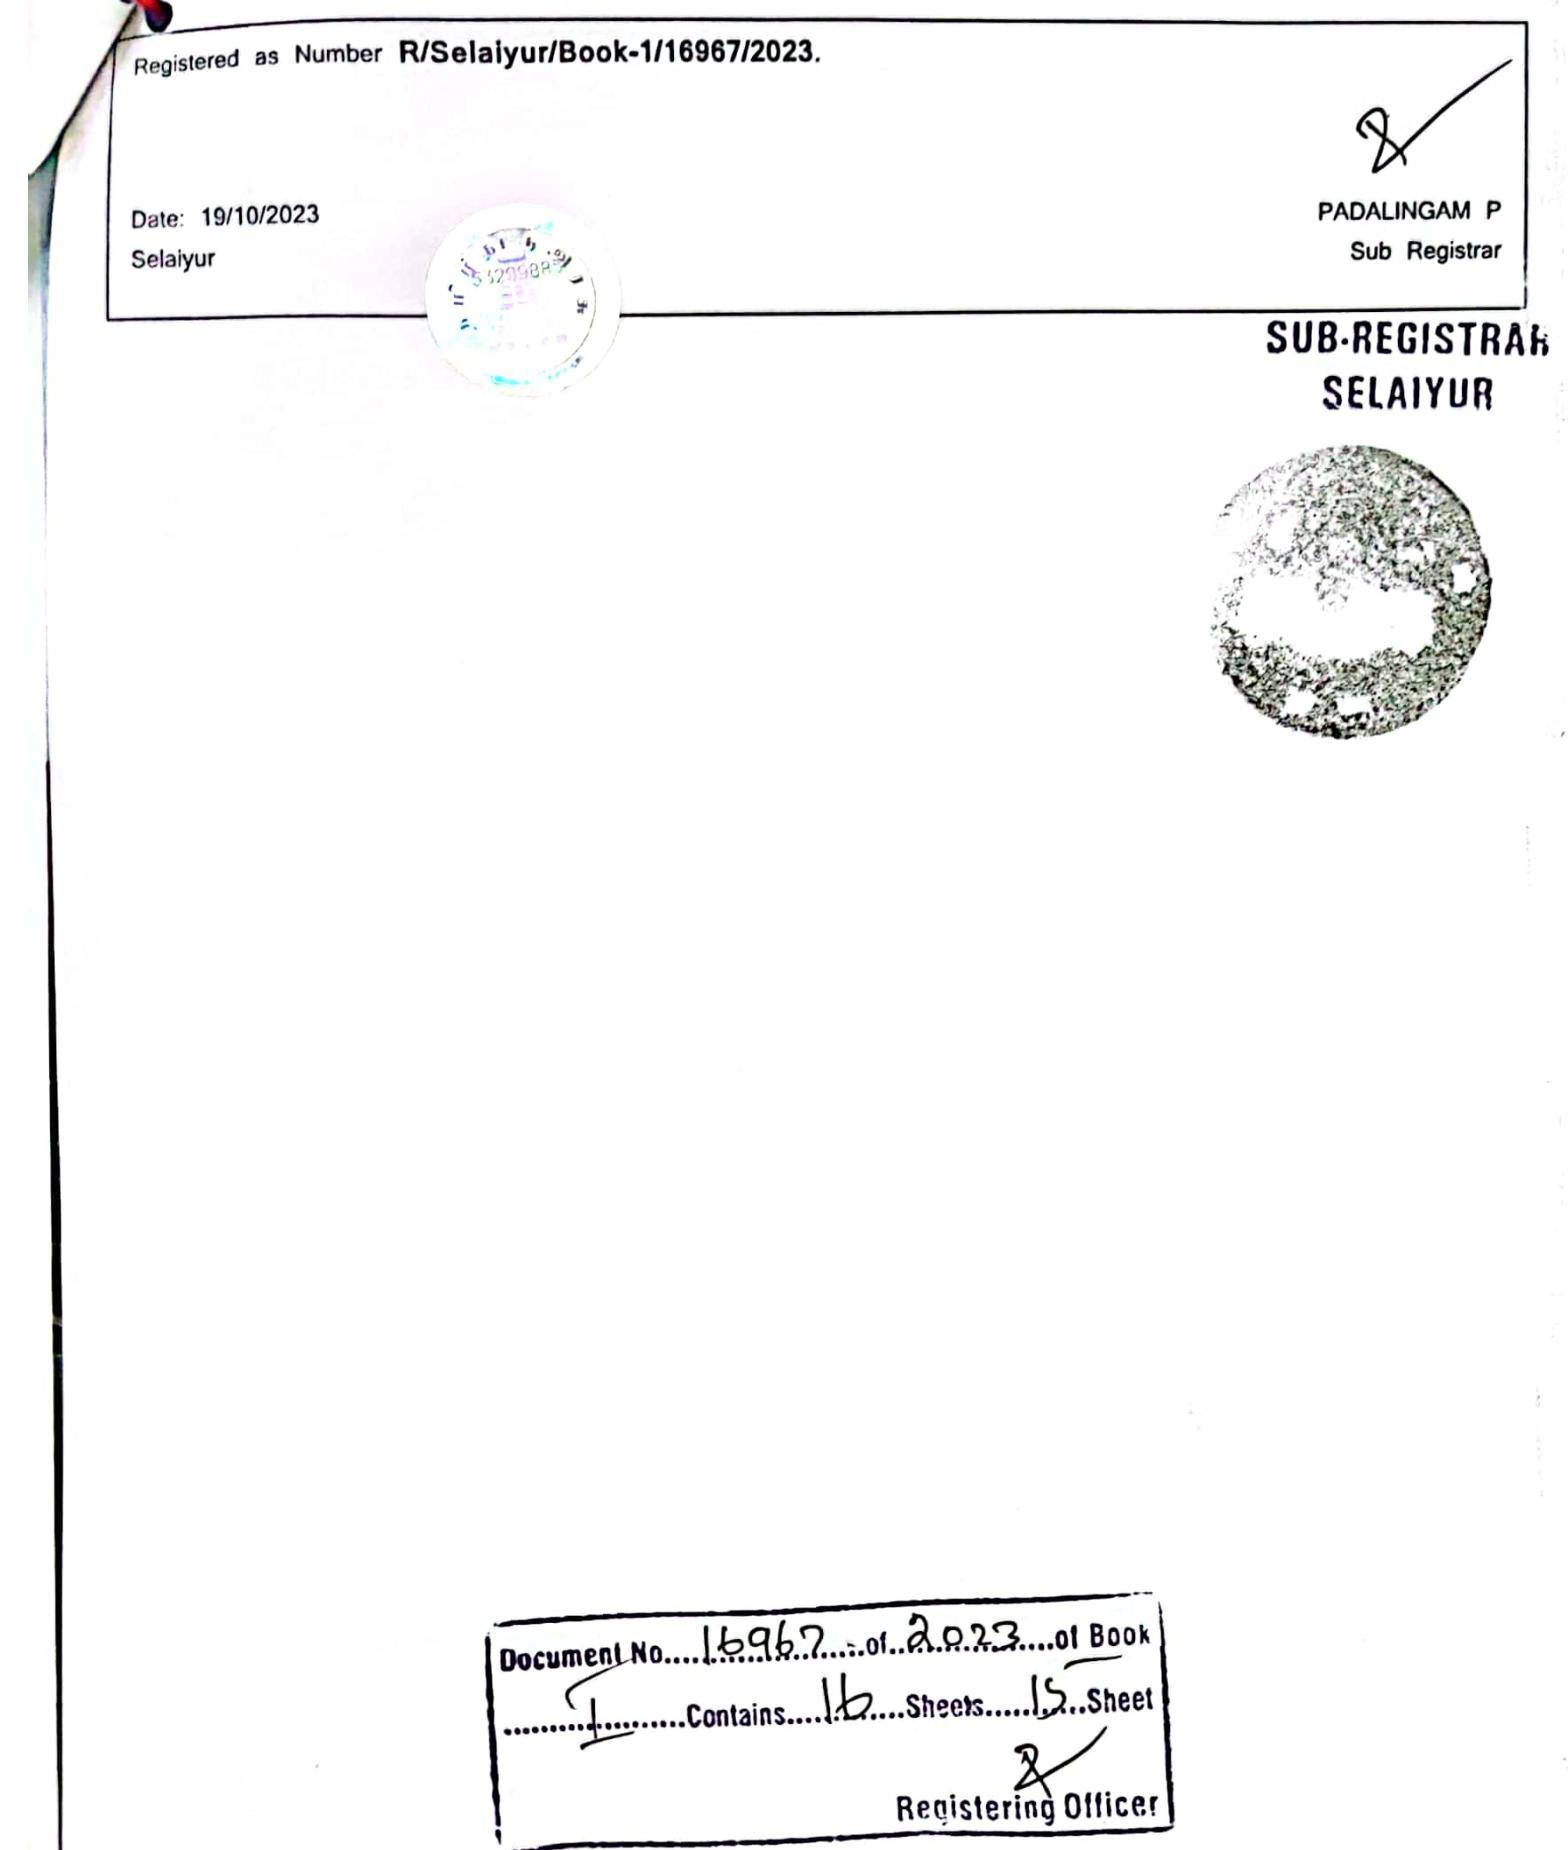 Registered as Number R/Selaiyur/Book-1/16967/2023.
Date: 19/10/2023
Selaiyur
PADALINGAM P
Sub Registrar
SUB-REGISTRAR
SELAIYUR
Document No....16967....of..2023....of Book
............I..........Contains....16....Sheets......15...Sheet
Registering Officer